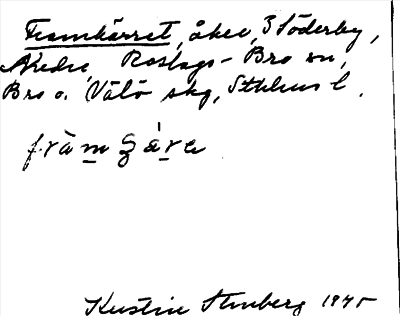 Framkärret, åker, 3 Söderby,
Nedre, Roslags-Bro sn,
Bro o. Vätö skg, Sthlms l.
fràmȝáre
Kerstin Stenberg 1945